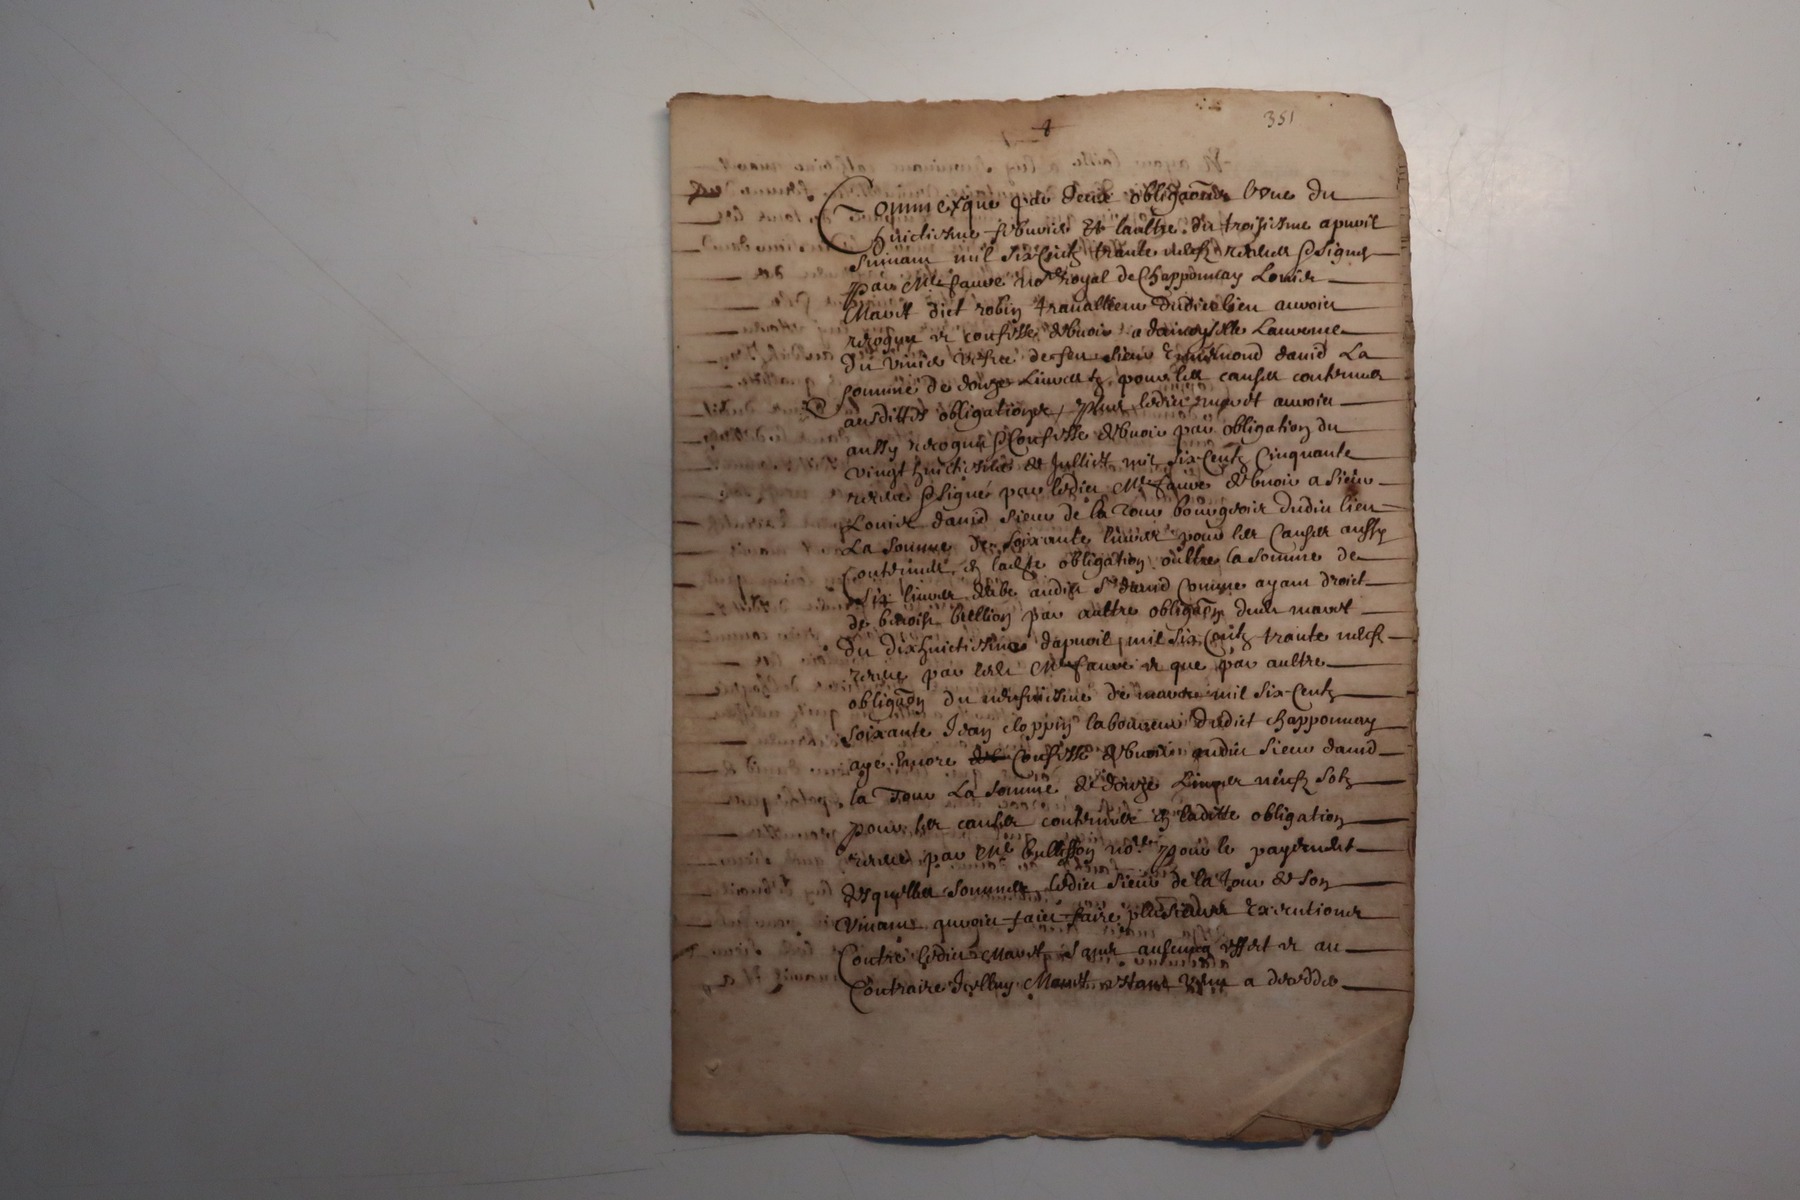 351
Comme que par deux obligaons lune du
huictiesme febvrier Et laultre du troisiesme apvril
suivant mil six Centz trante neufz receues & signes
par Me fauve nore royal de Chapponnay Louis
Mavet dict robin travallieur dudict lieu auroit
recogneu et confesse debvoir a damoyselle Laurence
du vivier vefve de feu sieur Eynemond david La
somme de douze Livres tz pour les causes contenues
ausdittes obligations, plus ledict mavet auroit
aussy recogneu & Confesse debvoir par obligation du
vingt huictiesme de Julliet mil six Centz Cinquante
receue & signé par ledict Me fauve debvoir a sieur
Louis david sieur de la Tour bourgeois dudict lieu
La somme de soixante livres pour les Causes aussy
Contenues en ladte obligation oultre la somme de
six livres deube audict Sr david Comme ayant droict
de benoist bellion par aultre obligaon dudt mavet
du dixhuictiesme dapvril mil six Centz trante neufz
receue par ledt Me fauve et que par aultre
obligaon du neufviesme de mars mil six Centz
soixante Jean cloppin laboureur dudict chapponnay
aye encore Confesse debvoir audict sieur david
la Tour La somme de douze Livres neufz solz
pour les causes contenues en laditte obligation
receue par Me bullisson nore pour le payement
desquelles sommes ledict sieur de la Tour de son
vivant auroit faict faire plusieurs Executions
Contre ledict Mavet sans aulcung effect et au
Contraire Icelluy Mavet estant venu a decedder